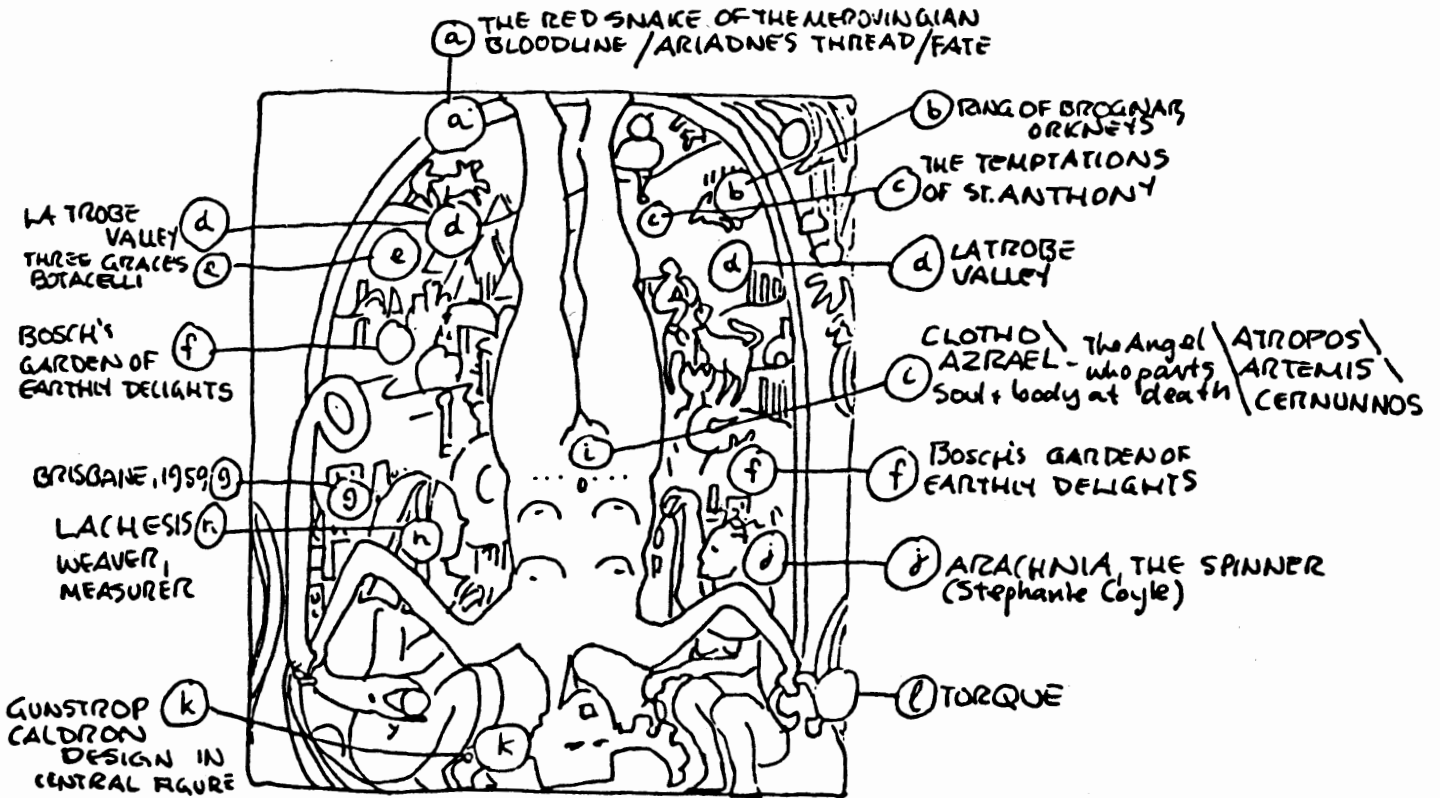 a THE RED SNAKE OF THE MEROVINGIAN
BLOODLINE / ARIADNE'S THREAD / FATE
a
b RING OF BROGNAR,
ORKNEYS
b
c THE TEMPTATIONS
OF ST. ANTHONY
c
LA TROBE
VALLEY d
d
THREE GRACES e
BOTACELLI
e
d LATROBE
VALLEY
d
BOSCH'S
GARDEN OF
EARTHLY DELIGHTS f
f
i CLOTHO \
AZRAEL - The Angel
who parts
Soul + body at death
\ ATROPOS \
ARTEMIS \
CERNUNNOS
i
BRISBANE, 1959, g
g
f BOSCH'S GARDEN OF
EARTHLY DELIGHTS
f
LACHESIS h
WEAVER,
MEASURER
h
j ARACHNIA, THE SPINNER
(Stephanie Coyle)
j
GUNSTROP k
CALDRON
DESIGN IN
CENTRAL FIGURE
k
l TORQUE